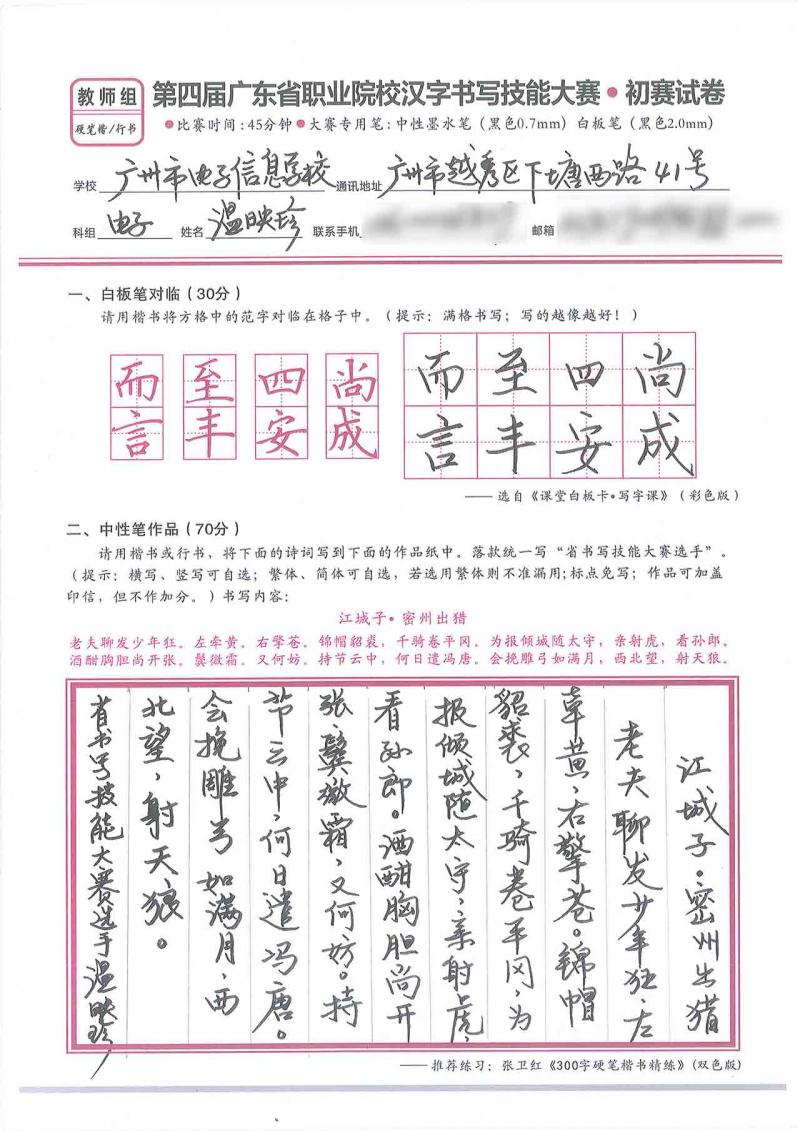 教师组
硬笔楷/行书
第四届广东省职业院校汉字书写技能大赛•初赛试卷
●比赛时间:45分钟●大赛专用笔:中性墨水笔(黑色0.7mm)白板笔(黑色2.0mm)
学校 广州市电子信息学校 通讯地址 广州市越秀区下塘西路41号
科组 电子 姓名 温映珍 联系手机 邮箱
一、白板笔对临(30分)
请用楷书将方格中的范字对临在格子中。(提示:满格书写;写的越像越好!)
而 至 四 尚 而 至 四 尚
言 丰 安 成 言 丰 安 成
——选自《课堂白板卡•写字课》(彩色版)
二、中性笔作品(70分)
请用楷书或行书,将下面的诗词写到下面的作品纸中。落款统一写“省书写技能大赛选手”。
(提示:横写、竖写可自选;繁体、简体可自选,若选用繁体则不准漏用;标点免写;作品可加盖
印信,但不作加分。)书写内容:
江城子•密州出猎
老夫聊发少年狂。左牵黄。右擎苍。锦帽貂裘,千骑卷平冈。为报倾城随太守,亲射虎,看孙郎。
酒酣胸胆尚开张。鬓微霜。又何妨。持节云中,何日遣冯唐。会挽雕弓如满月,西北望,射天狼。
江城子•密州出猎
老夫聊发少年狂、左
牵黄、右擎苍。锦帽
貂裘,千骑卷平冈,为
报倾城随太守,亲射虎,
看孙郎。酒酣胸胆尚开
张,鬓微霜,又何妨。持
节云中,何日遣冯唐。
会挽雕弓如满月,西
北望,射天狼。
省书写技能大赛选手温映珍
——推荐练习:张卫红《300字硬笔楷书精练》(双色版)